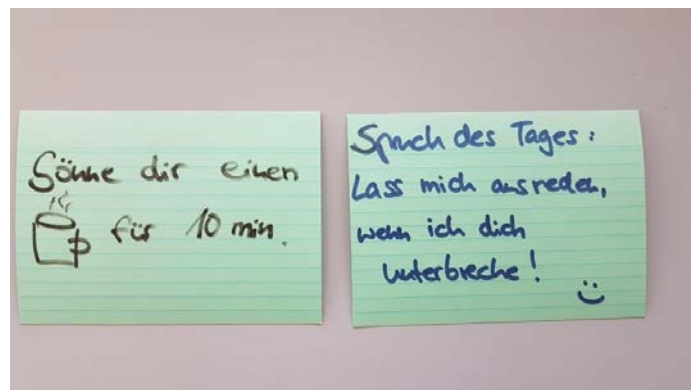 Gönne dir einen
für 10 min.
Spruch des Tages:
Lass mich ausreden,
wenn ich dich
unterbreche!